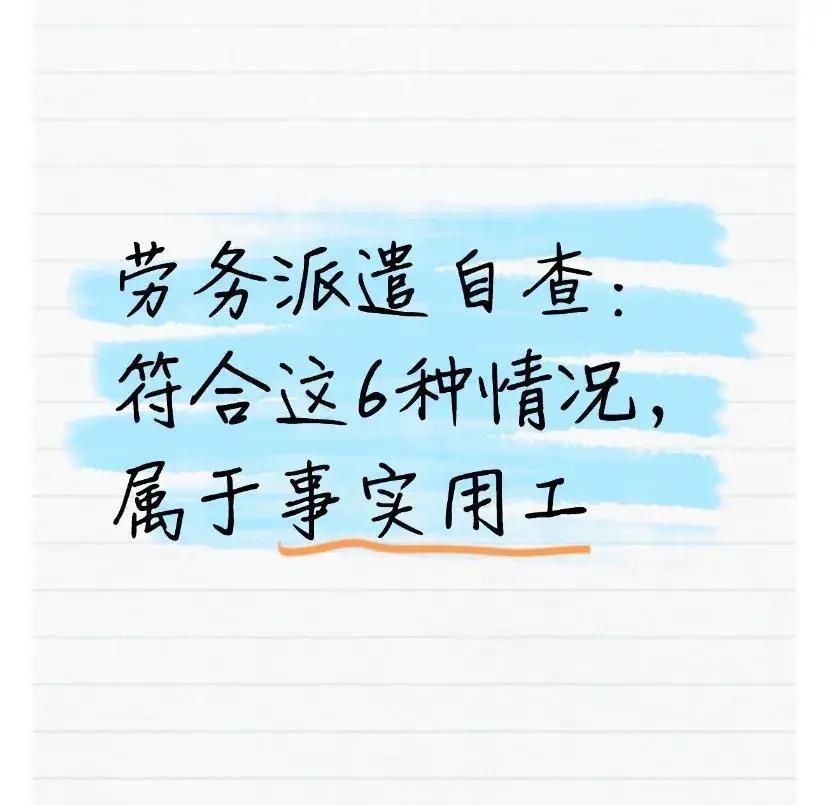 劳务派遣自查:
符合这6种情况,
属于事实用工